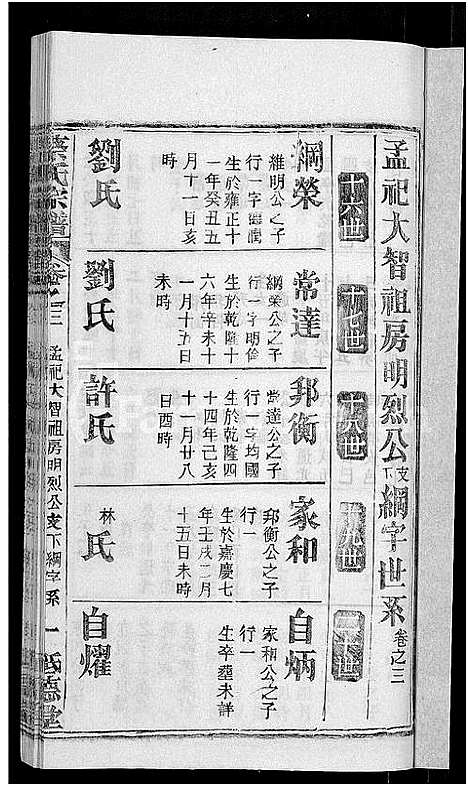 孟祀大智祖房明烈公支下綱字世系 卷之三
十六世
十七世
十八世
十九世
二十世
綱榮
維明公之子
行一字
生於雍正十
一年癸丑五
月十一日亥
時
劉氏
常達
綱榮公之子
行一字明倫
生於乾隆十
六年辛未十
一月十五日
未時
劉氏
邦衡
常達公之子
行一字均國
生於乾隆四
十四年己亥
十一月廿八
日酉時
許氏
家和
邦衡公之子
行一
生於嘉慶七
年壬戌二月
十五日未時
林氏
自炳
家和公之子
行一
生卒塟未詳
自燿
氏宗譜
卷之三 孟祀大智祖房明烈公支下綱字系 一 德堂